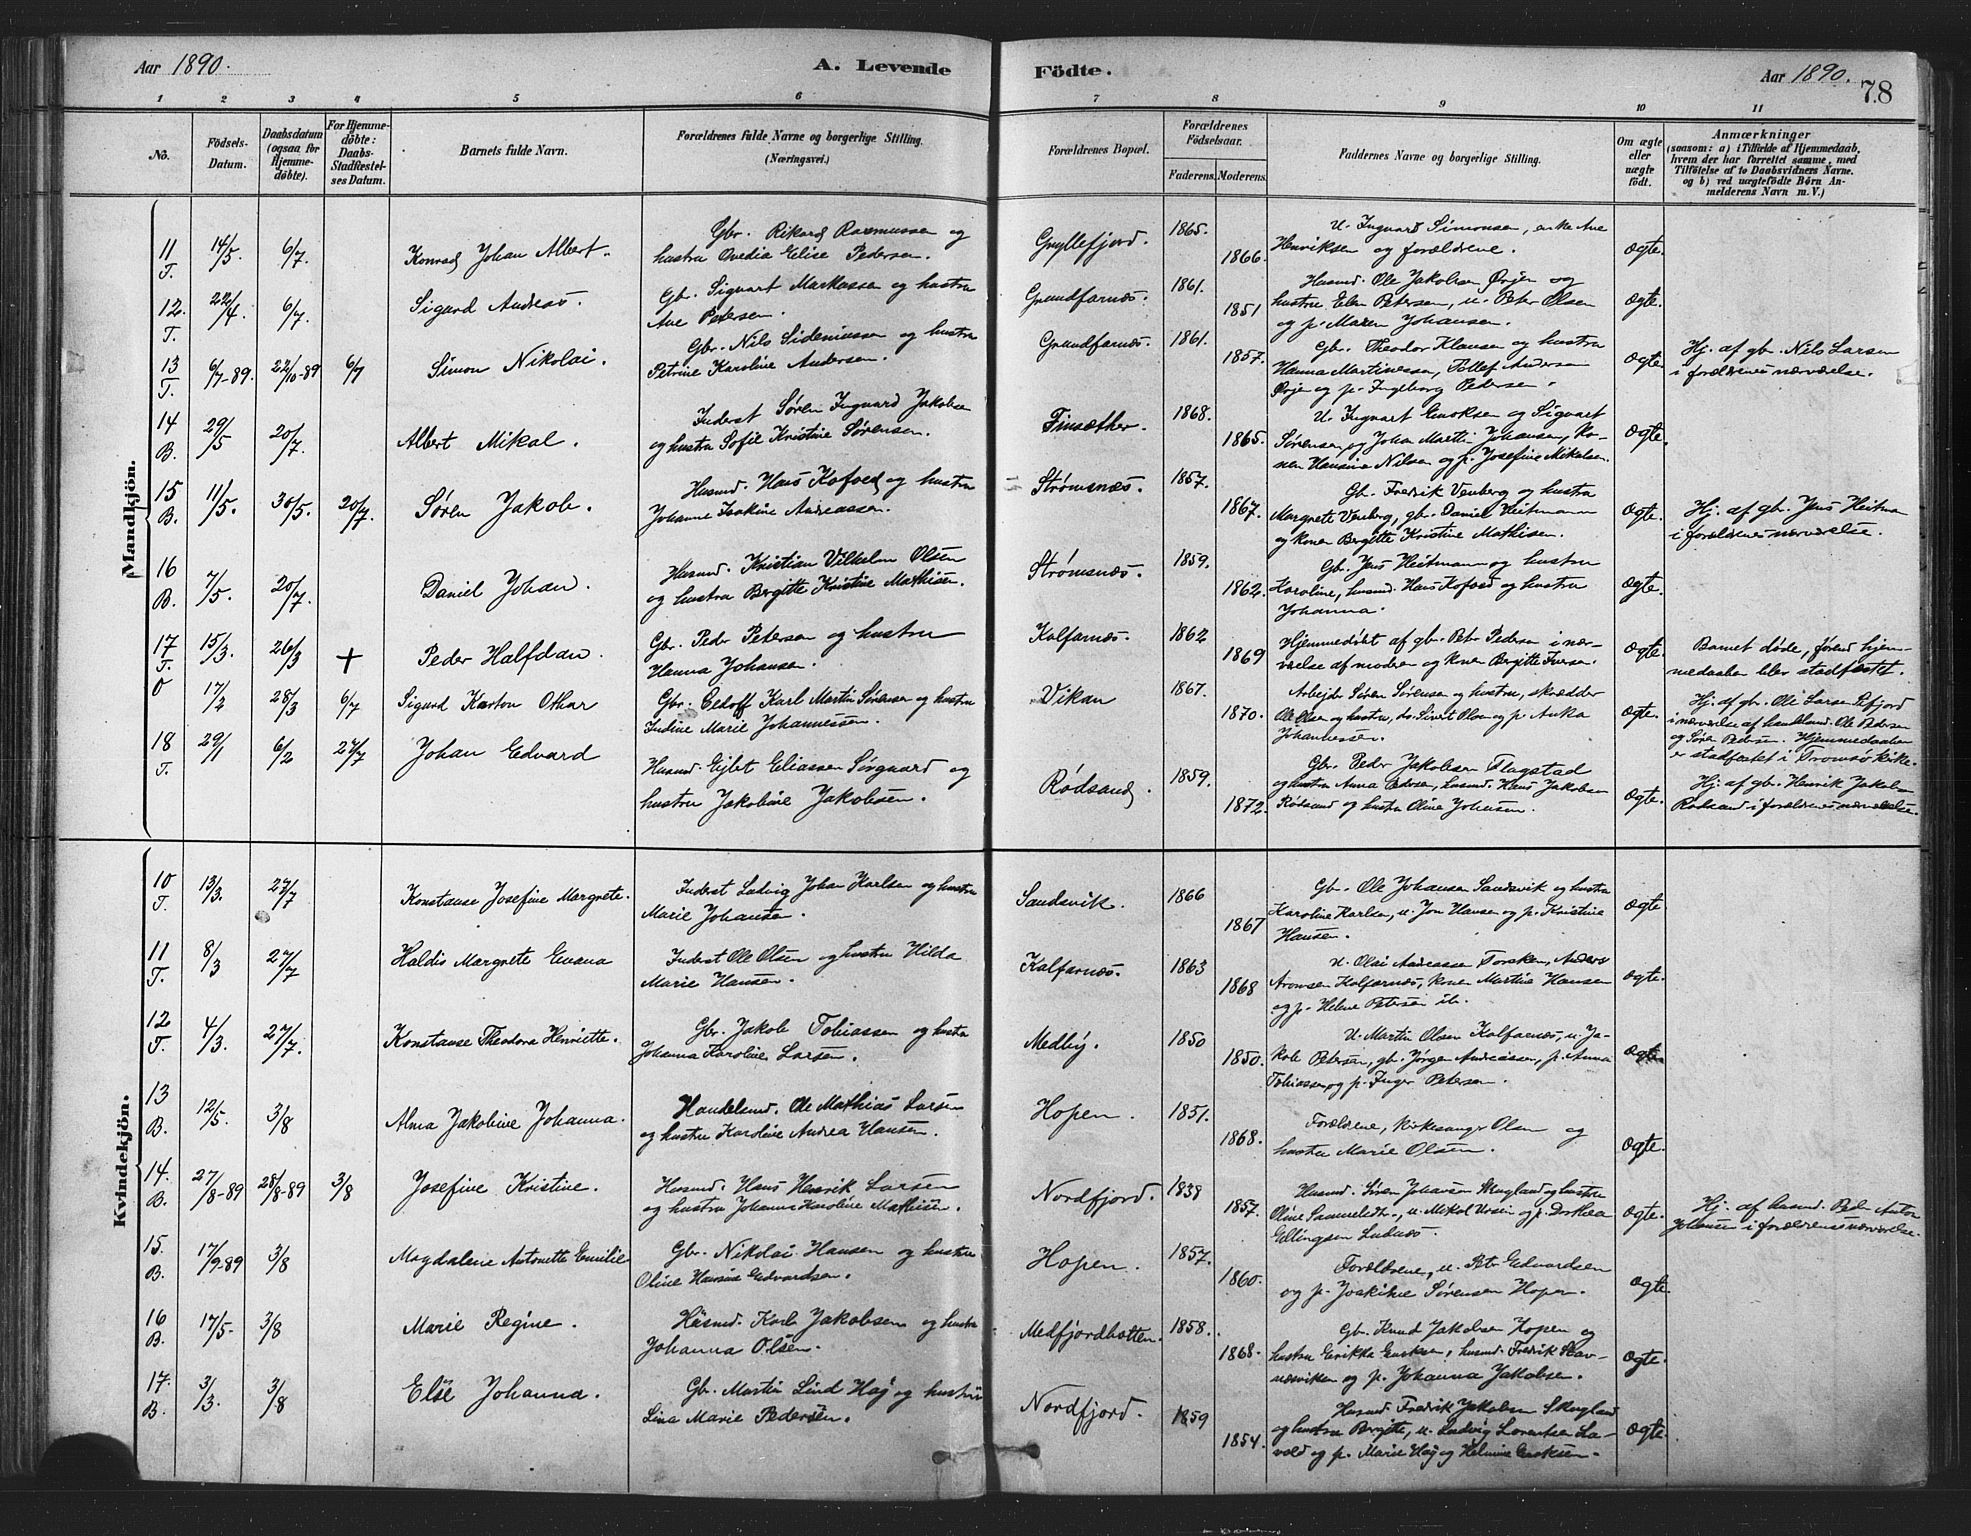 Aar 1890.
A. Levende Födte.
Aar 1890.
78
1 2 3 4 5 6 7 8 9 10 11
No.
Födsels-
Datum.
Daabsdatum
(ogsaa for
Hjemme-
döbte).
For Hjemme-
döbte:
Daabs-
Stadfæstel-
ses Datum.
Barnets fulde Navn.
Forældrenes fulde Navne og borgerlige Stilling.
(Næringsvei.)
Forældrenes Bopæl.
Forældrenes
Födselsaar.
Faderens. Moderens.
Faddernes Navne og borgerlige Stilling.
Om ægte
eller
uægte
födt.
Anmærkninger
(saasom: a) i Tilfælde af Hjemmedaab,
hvem der har forrettet samme, med
Tilföielse af to Daabsvidners Navne.
og b) ved uægtefödte Börn An-
melderens Navn m. V.)
Mandkjön.
11 T. 14/5. 6/7. Konrad Johan Albert.
Gbr. Rikard Rasmussen og
hustru Ovedia Elise Pedersen.
Gryllefjord. 1865. 1866.
U. Ingvard Simonsen, enke Ane
Henriksen og forældrene.
Ægte.
12. T. 22/4. 6/7. Sigurd Andreas.
Gb. Sigvart Markussen og hustru
Ane Pedersen.
Grundfarnæs. 1861. 1851
Husmd. Ole Jakobsen Örjen og
hustru Elen Petersen, u. Peter Olsen
og p. Maren Johansen.
Ægte.
13 T. 6/7-89. 22/10-89 6/7 Simon Nikolai.
Gbr. Nils Sideniussen og hustru
Petrine Karoline Andersen.
Grundfarnæs. 1861. 1857.
Gb. Theodor Klausen og hustru
Hanna Martinessen, Tollef Andersen
Örjen og p. Ingeborg Pedersen.
Ægte.
Hj. af gb. Nils Larsen
i forældrenes nærværelse.
14 B. 29/5 20/7. Albert Mikal.
Inderst Sören Ingvard Jakobsen
og hustru Sofie Kristine Sörensen.
Finsæther. 1868. 1865.
U. Ingvart Enoksen og Sigvart
Sörensen og Johan Martin Johansen, ko-
nen Hansine Nilsen og p. Josefine Mikalsen.
Ægte.
15 B. 11/5. 30/5. 20/7. Sören Jakob.
Husmd. Hans Kofoed og hustru
Johanne Isakine Andreassen.
Strömsnæs. 1857. 1867.
Gb. Fredrik Venberg og hustru
Margrete Venberg, gb. Daniel Heitmann
og konen Bergitte Kristine Mathisen.
Ægte.
Hj. af gb. Jens Heitman
i forældrenes nærværelse.
16 B. 7/5. 20/7. Daniel Johan.
Husmd. Kristian Vilhelm Olsen
og hustru Bergitte Kristine Mathisen.
Strömsnæs. 1859. 1862.
Gb. Jens Heitmann og hustru
Karoline, husmd. Hans Kofoed og hustru
Johanna.
Ægte.
17 T. 15/3. 26/3 + Peder Halfdan.
Gb. Peder Petersen og hustru
Hanna Johansen.
Kalfarnæs. 1862 1869
Hjemmedöbt af gb. Peter Pedersen i nær-
værelse af modren og konen Bergitte Iversen.
Ægte.
Barnet döde, förend hjem-
medaaben blev stadfæstet.
0 17/2 28/3 6/7 Sigurd Karton Othar
Gbr. Karl Martin Sörensen og hustru
Indine Marie Johannessen.
Vikan 1867. 1870.
Arbejder Sören Sörensen og hustru, skrædder
Ole Olsen og hustru, ds. Sivert Olsen og p. Anka
Johannessen.
Ægte.
Hj. af gb. Ole Larsen
i nærværelse af handelsmd. Ole Pedersen
og Sören Petersen. Hjemmedaaben
er stadfæstet i Tromsö kirke.
18 T. 29/1 6/2 27/7 Johan Edvard
Husmd. Ejlet Eliassen Sörgaard og
hustru Jakobine Jakobsen.
Rödsand. 1859. 1872.
Gbr. Peder Jakobsen Flagstad
og hustru Anna Pedersen, husmd. Hans Jakobsen
Rödsand og hustru Oline Johansen.
Ægte.
Hj. af gb. Henrik Jakobsen
Rödsand i forældrenes nærværelse.
Kvindekjön.
10 T. 13/3. 27/7 Konstanse Josefine Margrete.
Inderst Ludvig Johan Karlsen og hustru
Marie Johansen.
Sandsvik. 1866 1867
Gb. Ole Johansen Sandsvik og hustru
Karoline Karlsen, u. Jon Hansen og p. Kristine
Hansen.
Ægte
11 T. 8/3 27/7 Haldis Margrete Evana
Inderst Ole Olsen og hustru Hilda
Marie Hansen.
Kalfarnæs. 1863 1868
U. Olai Andreassen Torsken, Anders
Aronsen Kalfarnæs, konen Martine Hansen
og p. Helene Petersen ib.
Ægte.
12 T. 4/3. 27/7. Konstanse Theodora Henriette.
Gbr. Jakob Tobiassen og hustru
Johanna Karoline Larsen.
Medby. 1850 1850.
U. Martin Olsen Kalfarnæs, u. Ja-
kob Petersen, gb. Jörgen Andreassen, p. Anna
Tobiassen og p. Inger Petersen.
Ægte
13 B. 12/5. 3/8 Alma Jakobine Johanna.
Handelsmd. Ole Mathias Larsen
og hustru Karoline Andrea Hansen.
Hopen. 1851. 1868.
Forældrene, kirkesanger Olsen og
hustru Marie Olsen.
Ægte.
14. B. 27/8-89 28/8-89 3/8 Josefine Kristine.
Husmd. Hans Henrik Larsen
og hustru Johanna Karoline Mathisen.
Nordfjord. 1838 1857.
Husmd. Sören Johansen Skogland og hustru
Oline Samuelsdtr., u. Mikal og p. Dorthea
Ellingsen
Ægte.
Hj. af husmd. Peder Anton
Johansen i forældrenes nærværelse.
15. B. 17/9-89 3/8 Magdalene Antonette Emilie
Gb. Nikolai Hansen og hustru
Oline Hansine Edvardsen.
Hopen. 1857. 1860.
Forældrene, u. Petr. Edvardsen
og p. Joakine Sörensen Hopen.
Ægte.
16 B. 17/5. 3/8 Marie Regine.
Husmd. Karl Jakobsen og hustru
Johanna Olsen.
Medfjordbotten. 1858. 1868.
Gb. Knud Jakobsen Hopen og
hustru Erikka Enoksen, husmd. Fredrik Skav-
næsviken og p. Johanna Jakobsen.
Ægte.
17. B. 3/3. 3/8 Else Johanna.
Gb. Martin Lind Höj og hustru
Lina Marie Pedersen.
Nordfjord. 1859 1854.
Husmd. Fredrik Jakobsen Skogland
og hustru Bergitte, u. Ludvig Lorentsen La-
vold og p. Marie Höj og Helmine Enoksen.
Ægte.